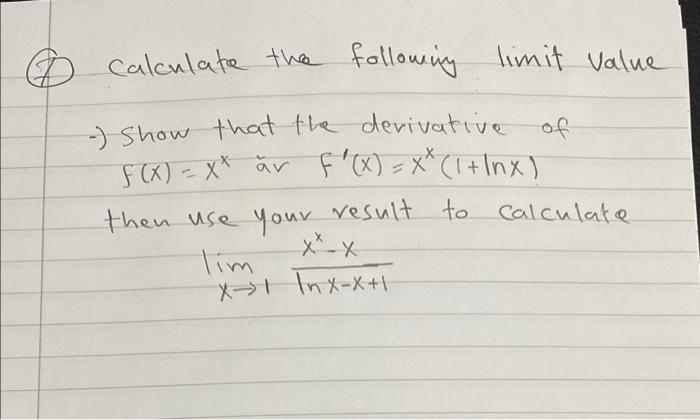 ⑦ Calculate the following limit value
→ Show that the derivative of
f(x) = x^x är f'(x) = x^x (1+lnx)
then use your result to calculate
lim x→1 (x^x - x)/(ln x - x + 1)